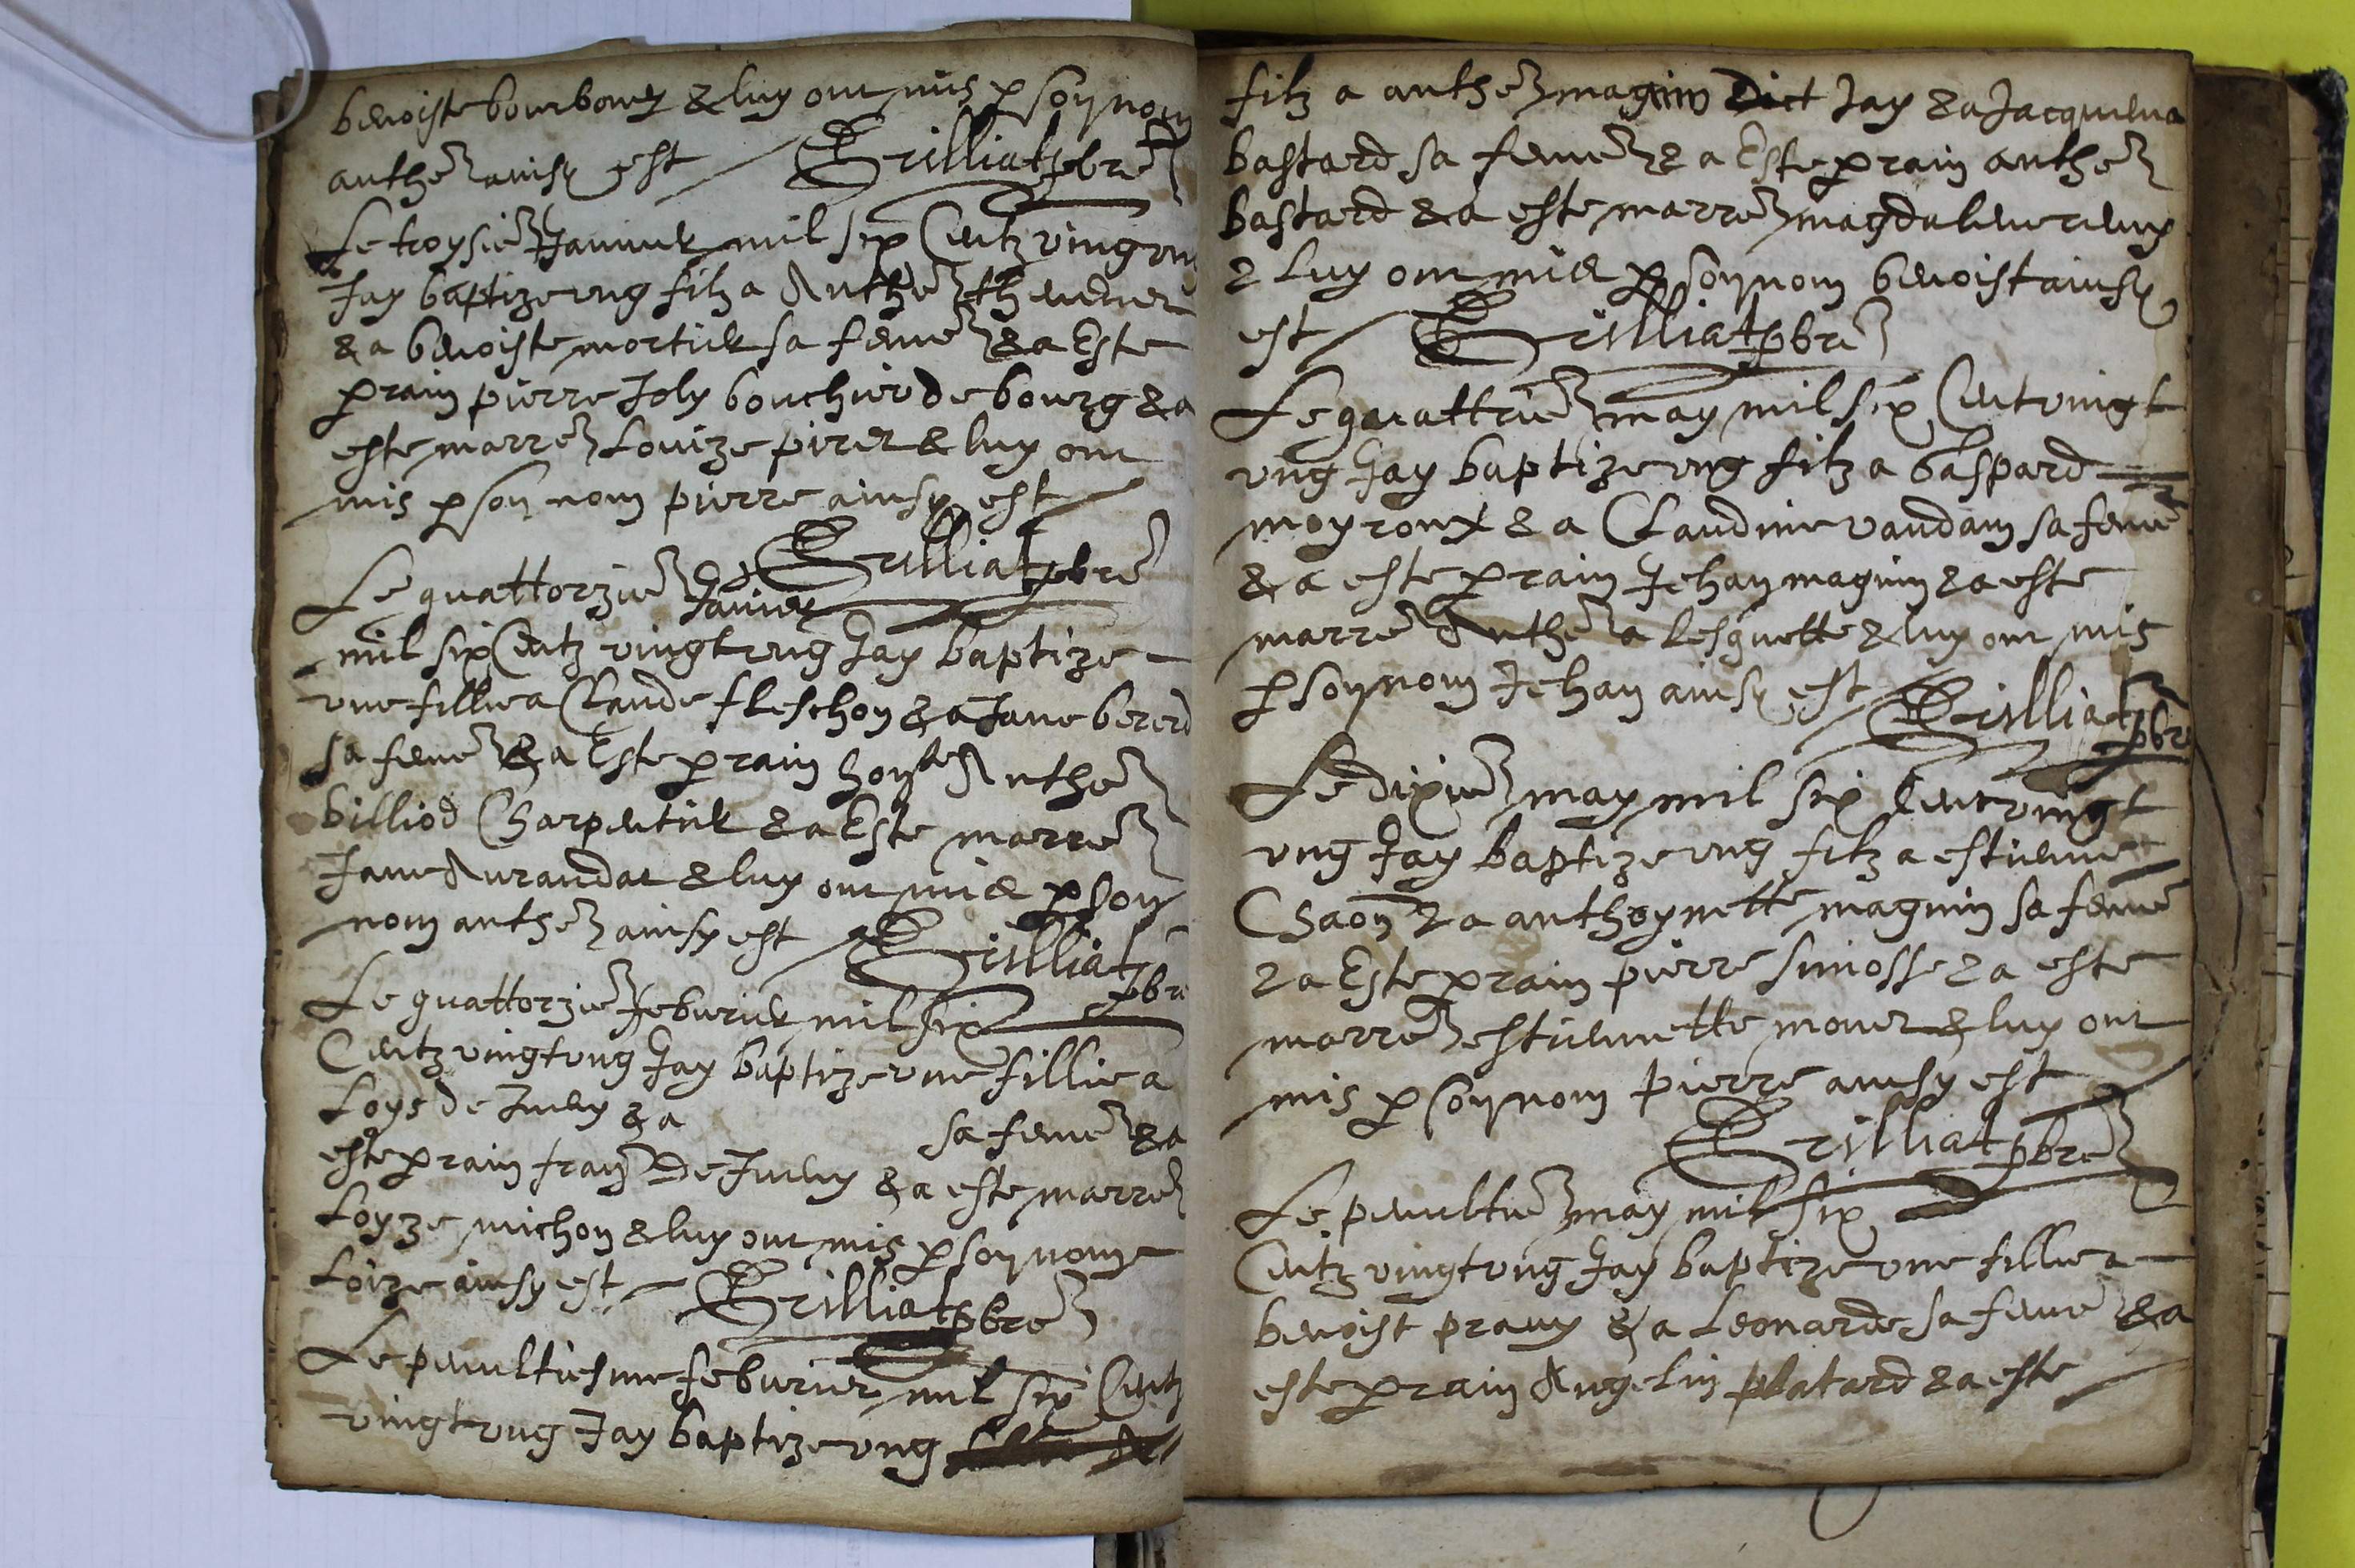 benoiste bourboney & luy ont mis p son nom
anthe ainsy est Grilliat pbre
Le troysie Janvier mil six Centz vingt ung
Jay baptize ung filz a Anthe thevenet
& a benoiste mortier sa feme & a Este
prain pierre Joly bouchier de bourg & a
este marre Louize piret & luy ont
mis p son nom pierre ainsy est
Grilliat pbre
Le quattorzie Janvier
mil six Centz vingt ung Jay baptize
une fillie a Claude fleschon & a Jane bererd
sa feme & a Este prain hon^ble Anthe
billiod Charpentier & a Este marre
Jane & luy ont mis p son
nom anthe ainsy est Grilliat
pbre
Le quattorzie feburier mil six
Centz vingt ung Jay baptize une fillie a
Loys de Juny & a sa feme & a
este prain fran de Juny & a este marre
Loyze michon & luy ont mis p son nom
Loize ainsy est Grilliat pbre
Le penultiesme feburier mil six Centz
vingt ung Jay baptize ung
filz a anthe magnin dict Jay & a Jacquema
bastard sa feme & a Este prain anthe
bastard & a este marre magdalene reny
& luy ont mis p son nom benoist ainsy
est Grilliat pbre
Le quattrie may mil six Cent vingt
ung Jay baptize ung filz a gaspard
moyroux & a Claudine vandam sa feme
& a este prain Jehan magnin & a este
marre Anthe a lesquette & luy ont mis
p son nom Jehan ainsy est Grilliat
pbre
Le dixie may mil six Cent vingt
ung Jay baptize ung filz a estienne
Chaon & a anthoynette magnin sa feme
& a Este prain pierre simosse & a este
marre estiennette monet & luy ont
mis p son nom pierre ainsy est
Grilliat pbre
Le penultie may mil six
Centz vingt ung Jay baptize une fillie a
benoist prany & a Leonarde sa feme & a
este prain Angelin platard & a este